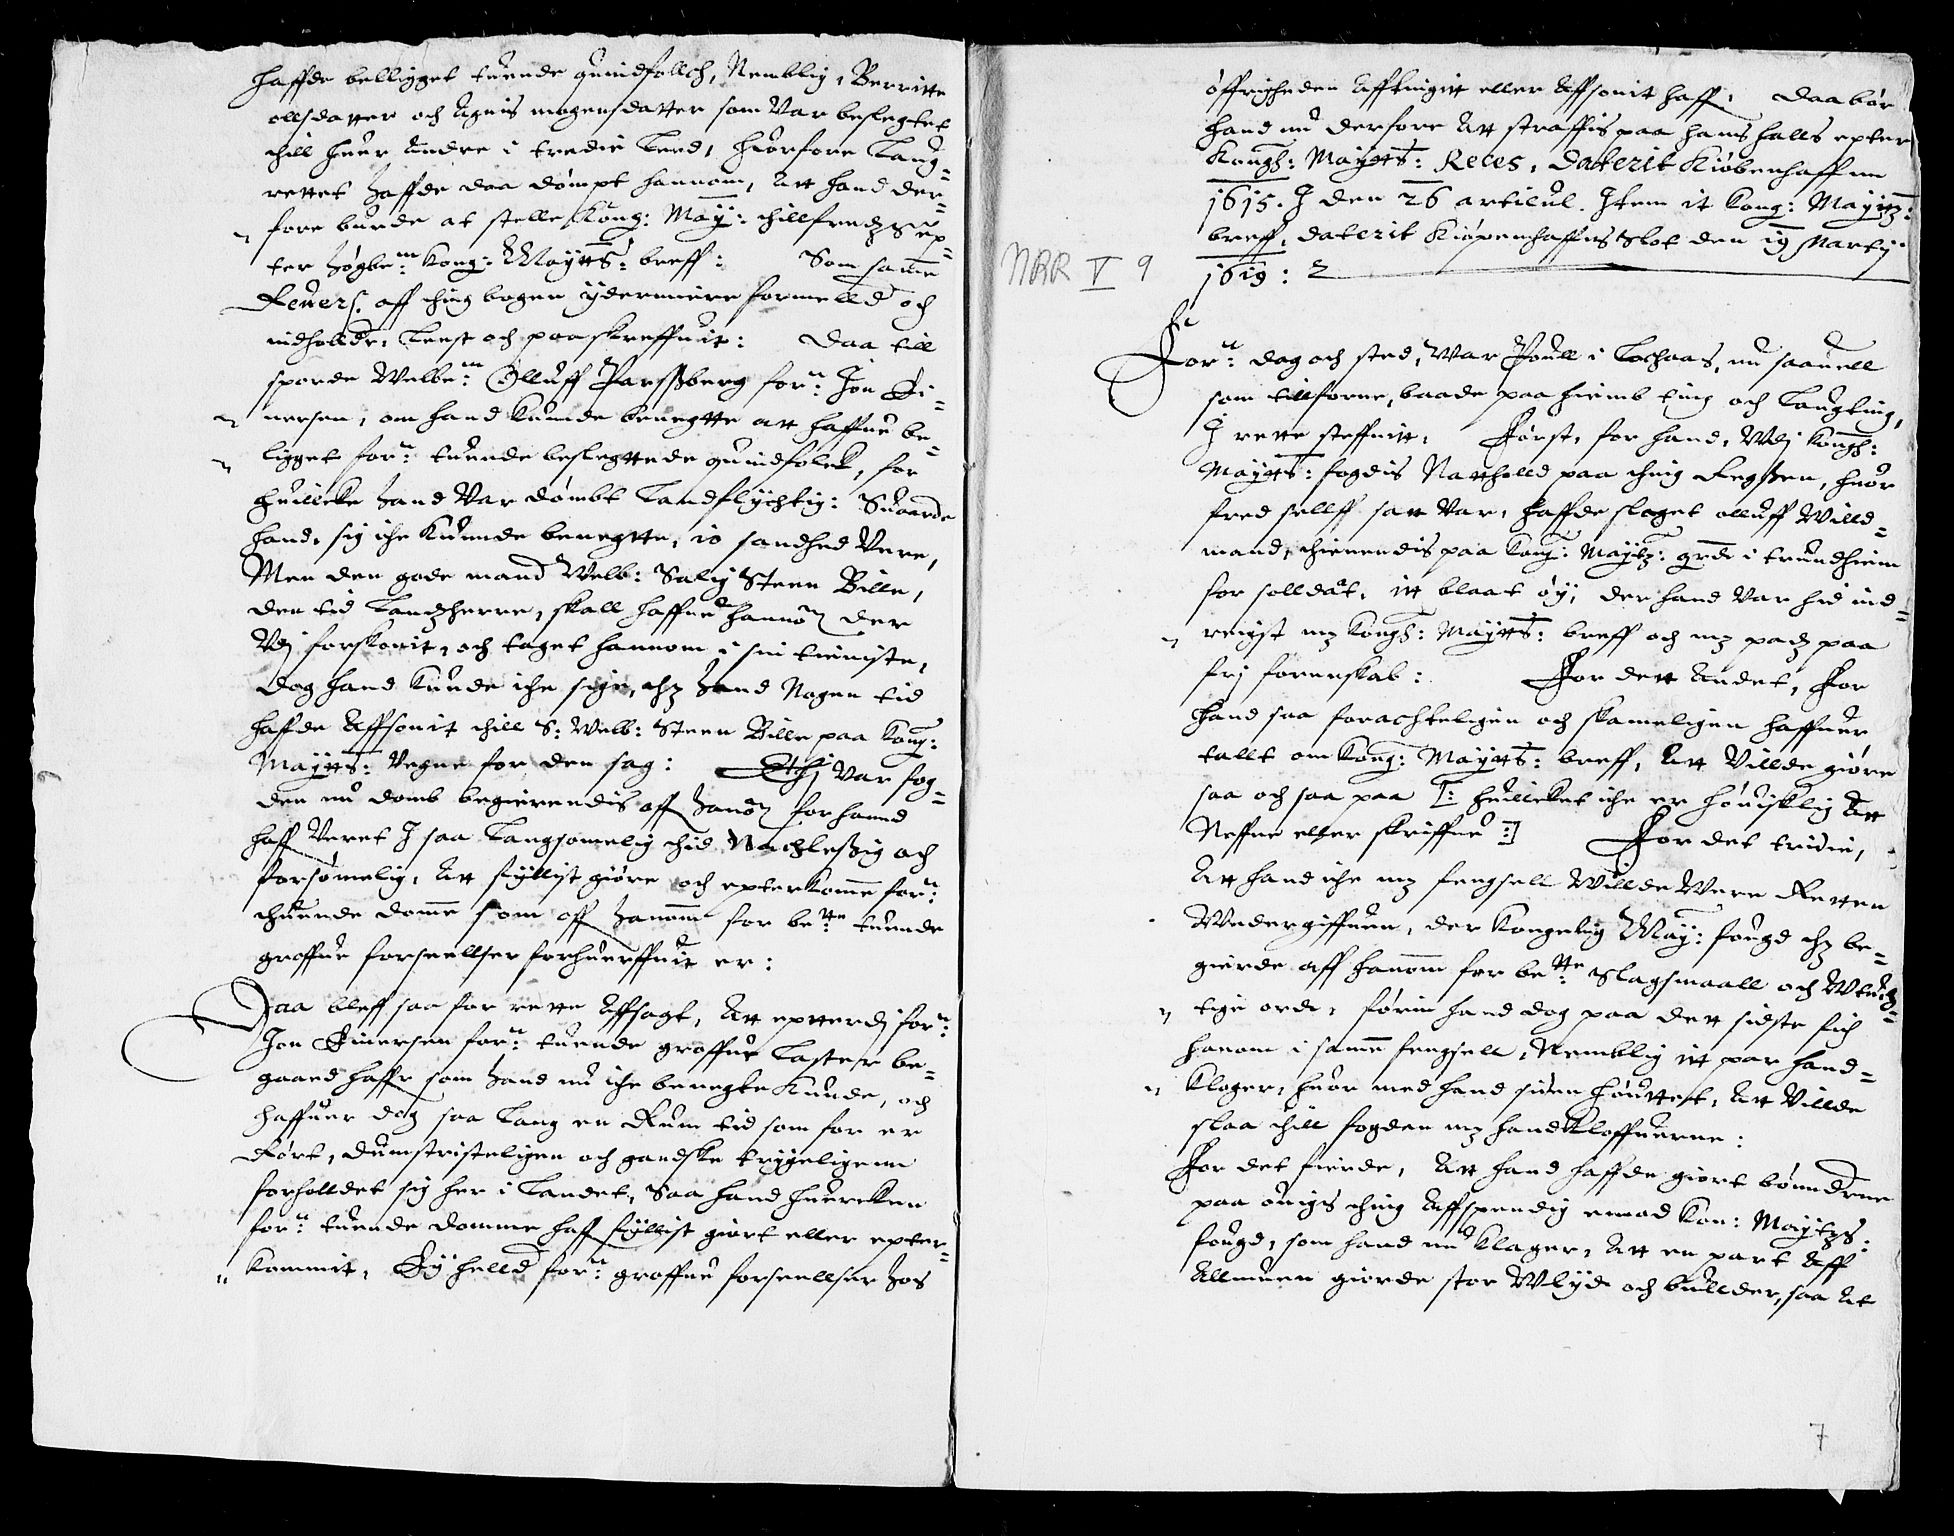 haffde belligget tuende quindfollch, Nemblig, Berritte
ollsdatter och Agnis mogensdatter som Var beslegtet
thill huer Andre i tredie Leed, huorfore Laug-
rettet haffde daa dømpt hannom, Att hand der-
fore burde at stelle Kong: May: thillfredz ep-
ter høgbe.m Kong: Maytts: breff: Som samme
Reuers. aff thing bogen ydermeire formelld och
indholldr, Leest och paaskreffuit: Daa till
sporde Welbe:m Olluff Parssberg for.n Jon Ei-
nersen, om hand kunde benegtte att haffue be-
ligget for:n tuende beslegttede quindfolck, for
huilcke hand Var dømbt Landflychtig: Suarde
hand, sig iche kunde benegtte, io sandhed Vere,
Men den gode mand Welb: Salig Steen Bille,
den tid Landzherre, skall haffue hannom der
Vdj forskonit, och taget hannom i sin tieniste,
dog hand kunde iche sige, thz hand Nogen tid
haffde Affsonit thill S: Welb: Steen Bille paa Kong:
Maytts: Vegne for den sag: Var fog-
den nu domb begierendis aff hanom for hannd
haff Veret J saa Langsomelig thid Nachlessig och
forsømelig, Att fyllist giøre och epterkomme for:n
thuende domme som aff hanom for be:tte tuende
groffue forseellser forhuerffuit er:
Daa bleff saa for rette Affsagt, Att eptterdj for:n
Jon Einersen for:n tuende groffue Laster be-
gaaed haffr som hand nu iche benegte kunde, och
haffuer dog saa Lang en Rum tid som for er
Rørt, dumstristeligen och gandske trygeligenn
forholldet sig her i Landet, Saa hand huercken
for:n tuende domme haff fyllist giort eller epter-
kommit, Ey helld for:n groffue forseellser hos
øffrigheden Affthingitt eller Affsonit haff, daa bør
hand nu derfore Att straffis paa hans halls epter
Kongh: Maytts: Reces, daterit Kiøbenhaffnn
1615. J den 26 artikul. Item it Kong: Maytz:
breff, daterit Kiøpenhaffns Slot den 19 Martij
NRR V 9
1619: 2
For:n dag och sted, War Poull i Lochaas, nu saauell
som tillforne, baade paa hiemb ting och Laugting,
J rette steffnitt, Først, for hand, Wdj Kongh:
Maytts: fogdis Nattholld paa thing Regssen, huor
fred sellff satt Var, haffde slaget olluff Willd-
mand, thienendis paa Kong: Maytz: grd i trundhiem
for solldat, itt blaat øy, der hand Var hid ind-
reigst mz Kongh: Maytts: breff och mz padz paa
frj forenskab: For dett Andet, For
hand saa forachteligen och skameligen haffuer
tallt om Kong: Maytts: breff, Att Villde giøre
saa och saa paa [: huilcket iche er høuisklig Att
Neffne eller skriffue :] For det tridie,
Att hand iche mz fengsell Willde Were Retten
Wndergiffuen, der Kongelig May: fougd thz be-
gierde aff hanom for be:tte Slagsmaall och Wtuch-
tige ord, førin hand dog paa dett sidste fich
hanom i samme fengsell, Nemblig itt par hand-
kloger, huor med hand siden høuttet, Att Villde
slaa thill fogden mz handkloffuerne:
For det fierde, Att hand haffde giort bønnderne
paa øuigs thing Affspendig emod Kon: Maytzs:
fougd, som hand nu klager, Att en part Aff
Allmuen giorde stor Wlyd och bullder, saa At
7